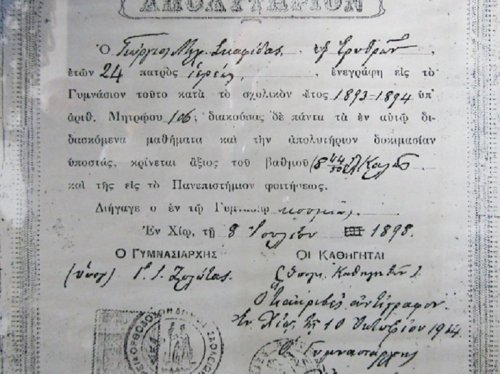 ΑΠΟΛΥΤΗΡΙΟΝ
Ὁ Γεώργιος Μιχ. Σκαρίδας ἐξ Ἐρυθρῶν
ἐτῶν 24 πατρὸς ἱερέως, ἐνεγράφη εἰς τὸ
Γυμνάσιον τοῦτο κατὰ τὸ σχολικὸν ἔτος 1893-1894 ὑπ'
ἀριθ. Μητρῴου 106, διακούσας δὲ πάντα τὰ ἐν αὐτῷ δι-
δασκόμενα μαθήματα καὶ τὴν ἀπολυτήριον δοκιμασίαν
ὑποστάς, κρίνεται ἄξιος τοῦ βαθμοῦ Καλῶς
καὶ τῆς εἰς τὸ Πανεπιστήμιον φοιτήσεως.
Διήγαγε δ ἐν τῷ Γυμνασίῳ κοσμίως.
Ἐν Χίῳ, τῇ 8 Ἰουλίου 1898.
Ο ΓΥΜΝΑΣΙΑΡΧΗΣ ΟΙ ΚΑΘΗΓΗΤΑΙ
(ὑπογ.) Γ. Ι. Ζολώτας
Ὅτι ἀκριβὲς ἀντίγραφον
Ἐν Χίῳ τῇ 10 Ὀκτωβρίου 1914
Ὁ Γυμνασιάρχης